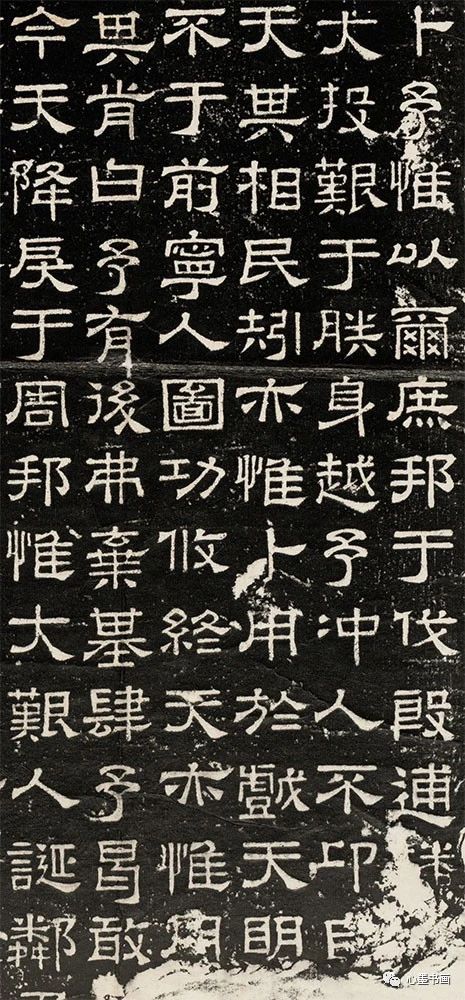 卜予惟以爾庶邦于伐殷逋
大投艱于朕身越予冲人不卬自
天其相民矧亦惟卜用於戲天明
不于前寧人圖功攸終天亦惟用
其肯曰予有後弗棄基肆予曷敢
今天降戾于周邦惟大艱人誕鄰
书画